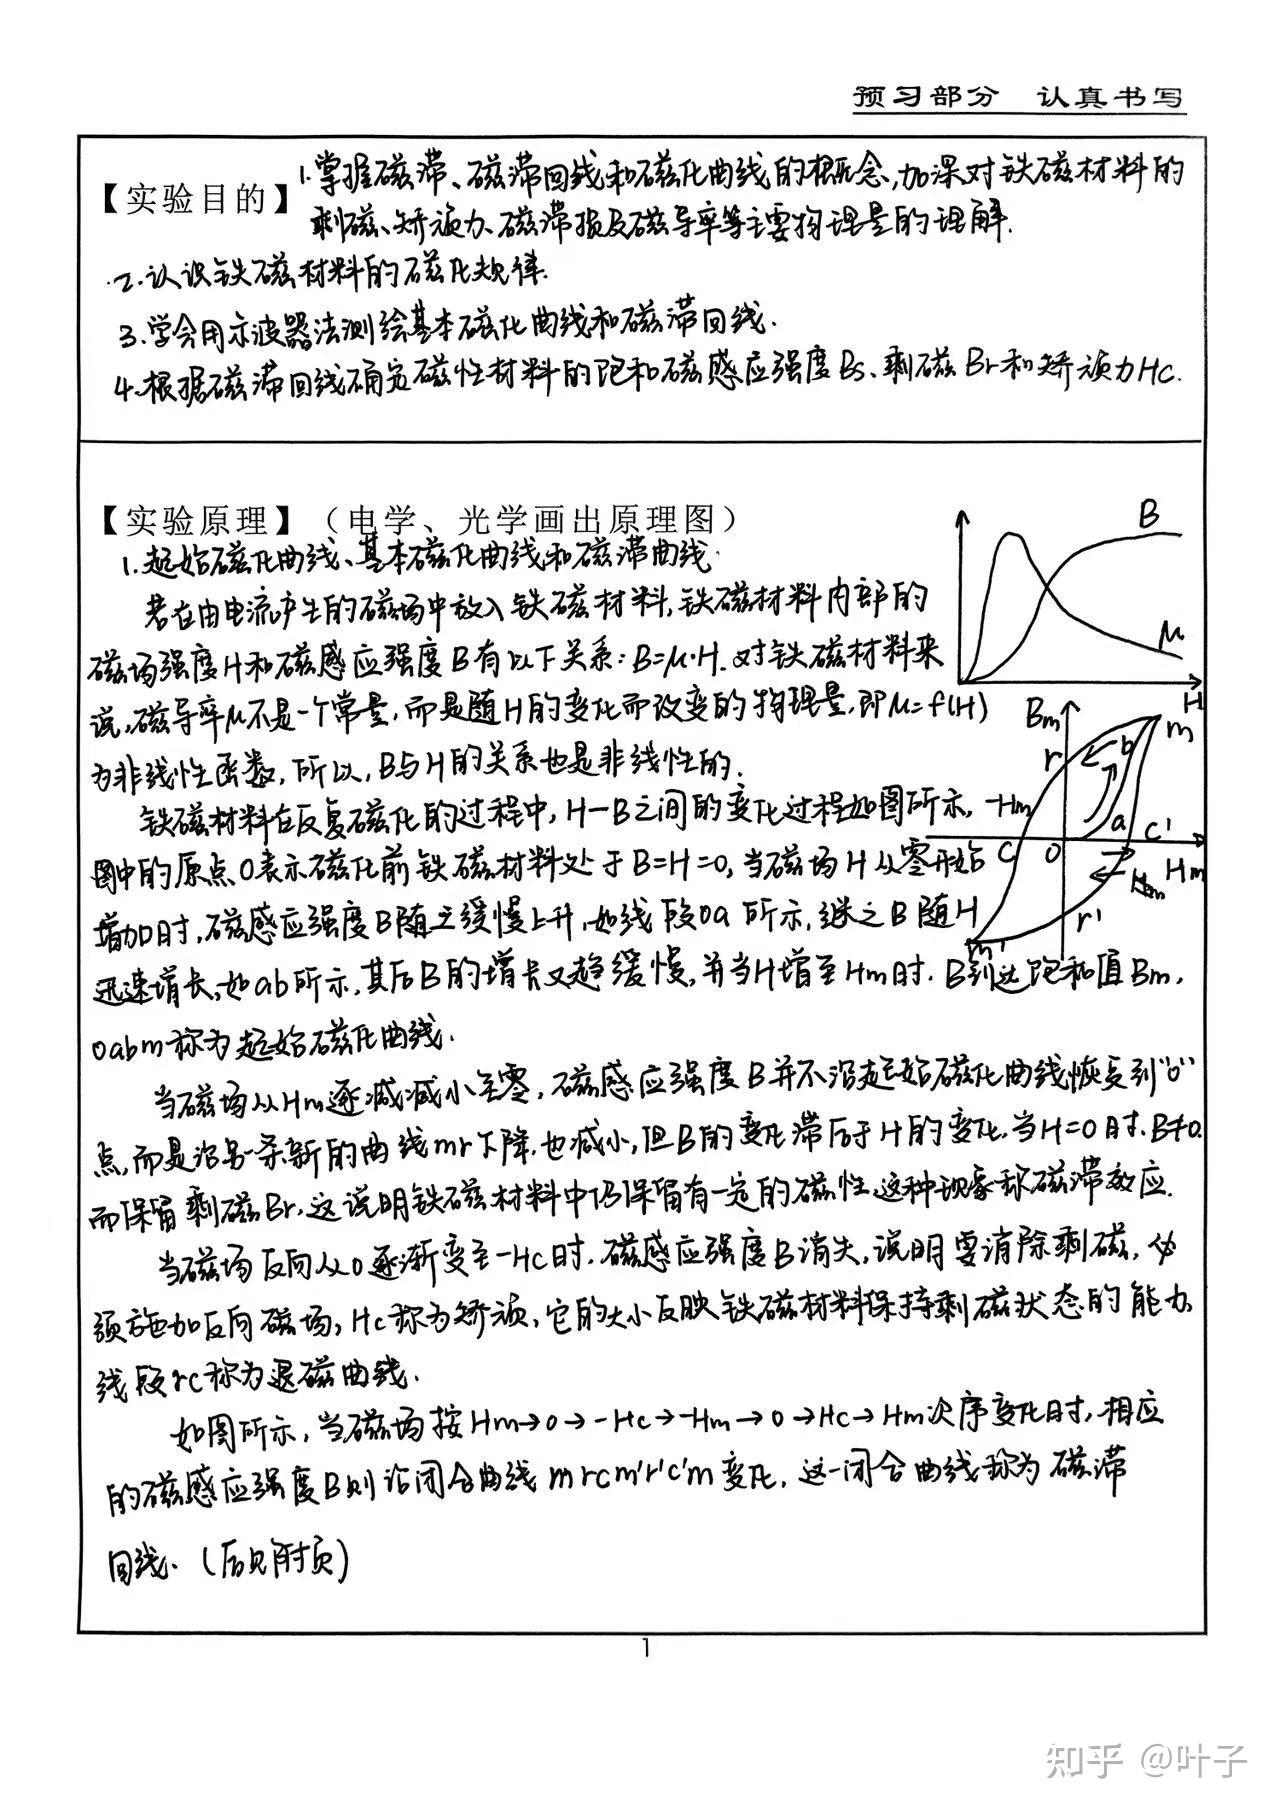 预习部分 认真书写
【实验目的】 1.掌握磁滞、磁滞回线和磁化曲线的概念,加深对铁磁材料的
剩磁、矫顽力、磁滞损及磁导率等主要物理量的理解.
2.认识铁磁材料的磁化规律.
3.学会用示波器法测绘基本磁化曲线和磁滞回线.
4.根据磁滞回线确定磁性材料的饱和磁感应强度Bs、剩磁Br和矫顽力Hc.
【实验原理】(电学、光学画出原理图)
1.起始磁化曲线、基本磁化曲线和磁滞曲线.
若在由电流产生的磁场中放入铁磁材料,铁磁材料内部的
磁场强度H和磁感应强度B有以下关系:B=μ·H.对铁磁材料来
说,磁导率μ不是一个常量,而是随H的变化而改变的物理量,即μ=f(H)
为非线性函数,所以,B与H的关系也是非线性的.
铁磁材料在反复磁化的过程中,H-B之间的变化过程如图所示,
图中的原点O表示磁化前铁磁材料处于B=H=0,当磁场H从零开始
增加时,磁感应强度B随之缓慢上升,如线段oa所示,继之B随H
迅速增长,如ab所示,其后B的增长又趋缓慢,并当H增至Hm时.B到达饱和值Bm,
oabm称为起始磁化曲线.
当磁场从Hm逐减减小至零,磁感应强度B并不沿起始磁化曲线恢复到"0"
点,而是沿另一条新的曲线mr下降,也减小,但B的变化滞后于H的变化.当H=0时.B≠0.
而保留剩磁Br,这说明铁磁材料中仍保留有一定的磁性,这种现象称磁滞效应.
当磁场反向从0逐渐变至-Hc时,磁感应强度B消失,说明要消除剩磁,必
须施加反向磁场,Hc称为矫顽,它的大小反映铁磁材料保持剩磁状态的能力,
线段rc称为退磁曲线.
如图所示,当磁场按Hm→0→-Hc→-Hm→0→Hc→Hm次序变化时,相应
的磁感应强度B则沿闭合曲线mrcm'r'c'm变化,这一闭合曲线称为磁滞
回线.(后见附页)
B
μ
H
Bm
m
r
b
-Hm
a
c'
C
O
Hm
Hm
r'
m'
1
知乎 @叶子